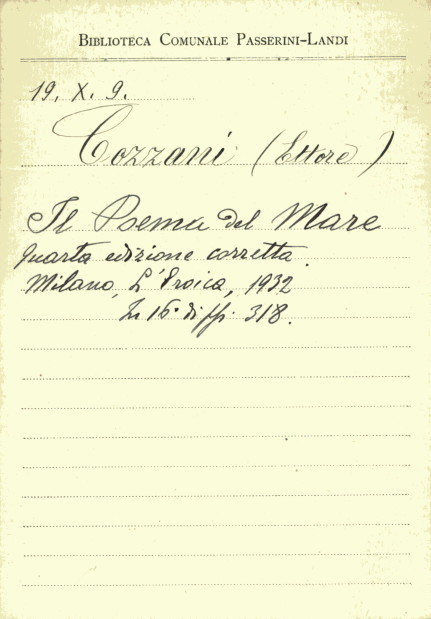 BIBLIOTECA COMUNALE PASSERINI-LANDI
19. X. 9.
Cozzani (Ettore)
Il Poema del Mare
quarta edizione corretta.
Milano, L'Eroica, 1932
In 16° di pp. 318.